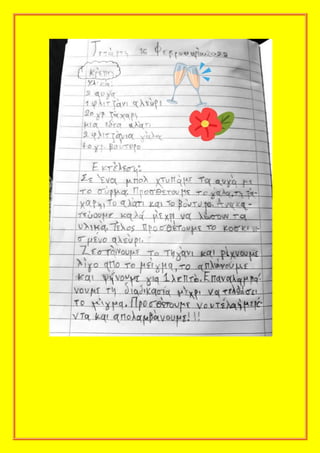 Τετάρτη 16 Φεβρουαρίου
Κρέπες
Υλικά:
2 αυγά
1 φλιτζάνι αλεύρι
20 γρ ζάχαρη
μια πρέζα αλάτι
2 φλιτζάνια γάλα
40 γρ. βούτυρο
Εκτέλεση:
Σε ένα μπολ χτυπάμε τα αυγά με
το σύρμα. Προσθέτουμε το γάλα, τη ζά-
χαρη, το αλάτι και το βούτυρο. Ανακα-
τεύουμε καλά μέχρι να λιώσουν τα
υλικά. Τέλος προσθέτουμε το κοσκινι-
σμένο αλεύρι.
Ζεσταίνουμε το τηγάνι και ρίχνουμε
λίγο από το μείγμα, το απλώνουμε
και ψήνουμε για 1 λεπτό. Επαναλαμβά-
νουμε τη διαδικασία μέχρι να τελειώσει
το μίγμα. Προσθέτουμε νουτέλα, μερέ-
ντα και απολαμβάνουμε!!!